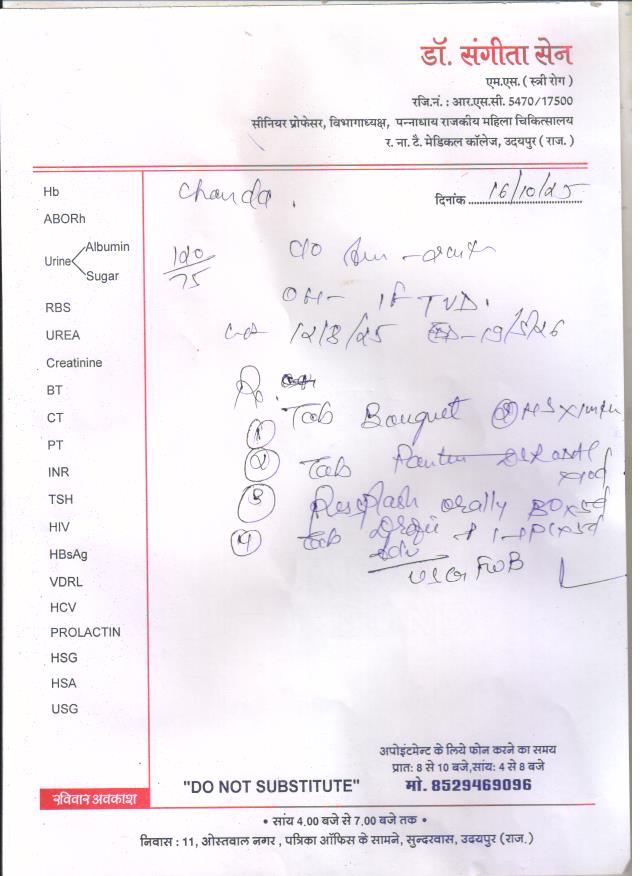 डॉ. संगीता सेन
एम.एस. ( स्त्री रोग )
रजि.नं. : आर.एस.सी. 5470/17500
सीनियर प्रोफेसर, विभागाध्यक्ष, पन्नाधाय राजकीय महिला चिकित्सालय
र. ना. टै. मेडिकल कॉलेज, उदयपुर ( राज. )
Chanda .
दिनांक 16/10/25
Hb
ABORh
Urine Albumin
Sugar
120/75
c/o
RBS
OH- TVD.
UREA
12/8/25 19/5/26
Creatinine
BT
① Tab Bouquet HS
CT
PT
② Tab
INR
③ orally BD x 5d
TSH
④ Tab x 5d
HIV
Adv
HBsAg
USG FWB
VDRL
HCV
PROLACTIN
HSG
HSA
USG
अपोइंटमेन्ट के लिये फोन करने का समय
प्रातः 8 से 10 बजे,सांयः 4 से 8 बजे
"DO NOT SUBSTITUTE" मो. 8529469096
रविवार अवकाश
• सांय 4.00 बजे से 7.00 बजे तक •
निवास : 11, ओस्तवाल नगर , पत्रिका ऑफिस के सामने, सुन्दरवास, उदयपुर (राज.)